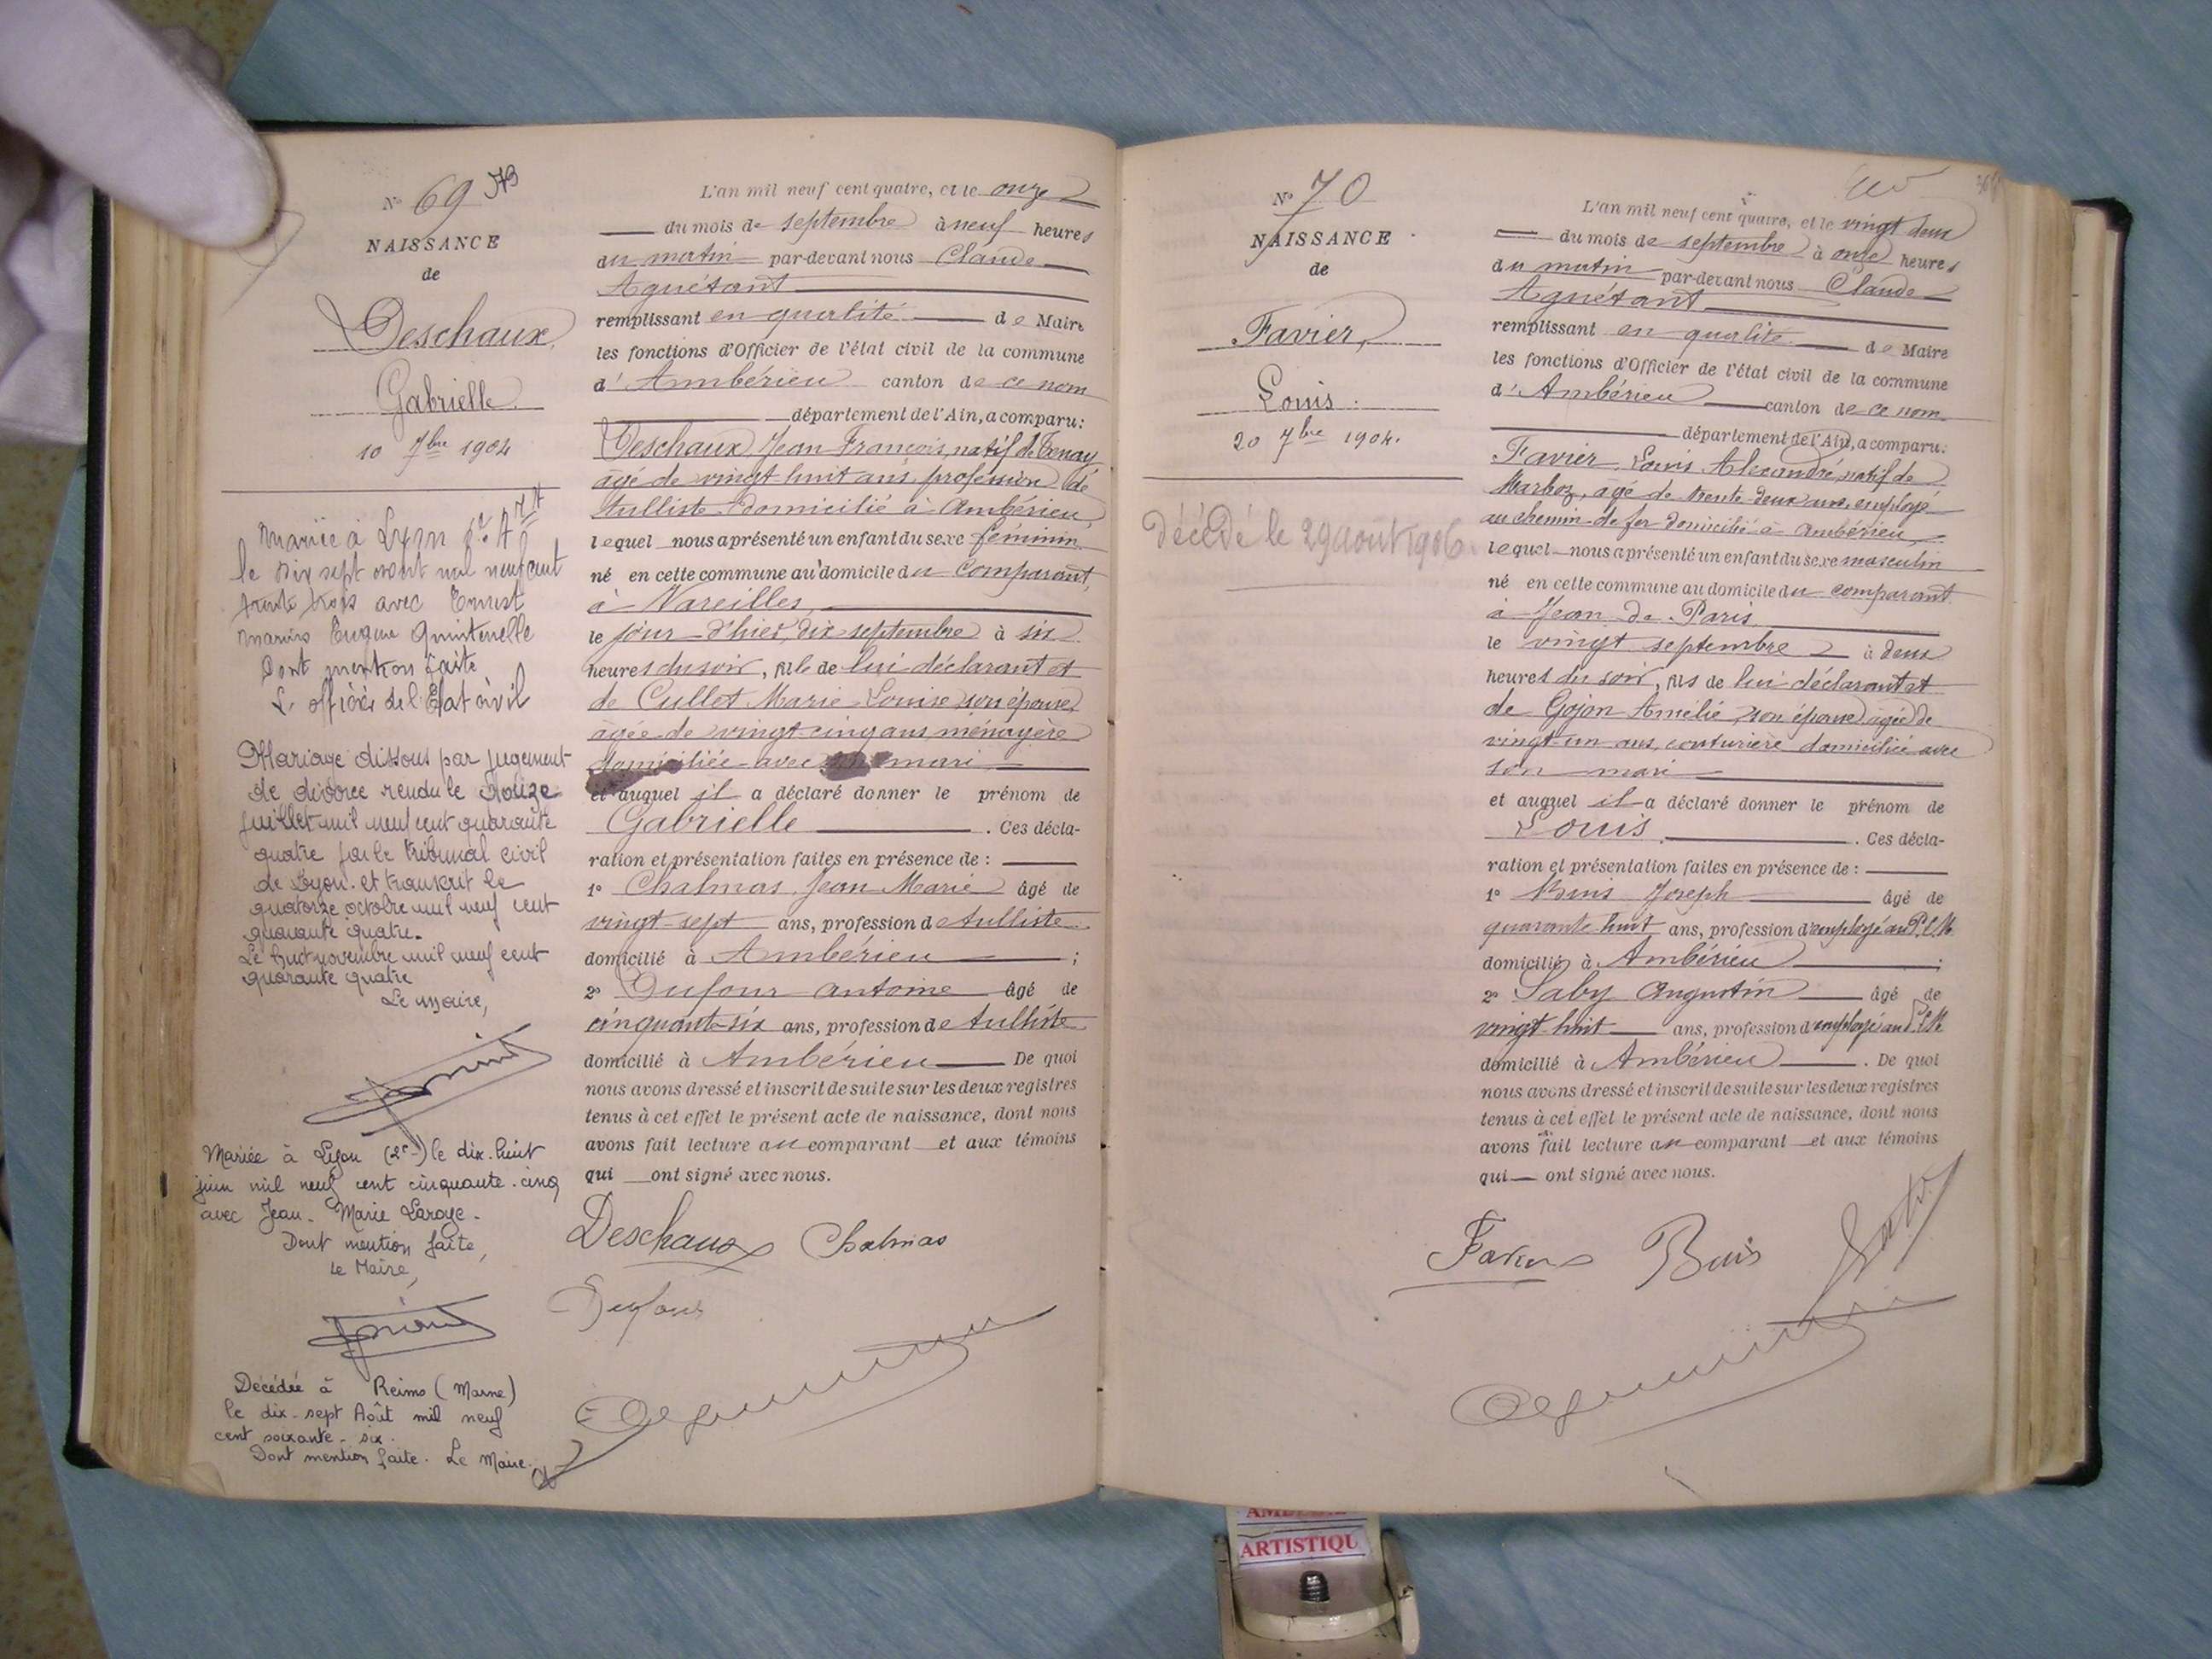 N° 69
NAISSANCE
de
Deschaux
Gabrielle
10 7bre 1904
Mariée à Lyon
le dix sept août mil neuf cent
trente trois avec Ernest
Eugène Quintenelle
Dont mention faite
L'officier de l'Etat civil
Mariage dissous par jugement
de divorce rendu le douze
juillet mil neuf cent quarante
quatre par le tribunal civil
de Lyon et transcrit le
quatorze octobre mil neuf cent
quarante quatre.
Le huit novembre mil neuf cent
quarante quatre
Le Maire,
Mariée à Lyon (2e) le dix-huit
juin mil neuf cent cinquante-cinq
avec Jean-Marie Laroye.
Dont mention faite,
Le Maire,
Décédée à Reims (Marne)
le dix-sept Août mil neuf
cent soixante-six.
Dont mention faite. Le Maire.
L'an mil neuf cent quatre, et le onze
du mois de septembre à neuf heures
du matin par-devant nous Claude
Aguétant
remplissant en qualité de Maire
les fonctions d'Officier de l'état civil de la commune
d'Ambérieu canton de ce nom
département de l'Ain, a comparu:
Deschaux Jean François, natif de Tenay
âgé de vingt-huit ans, profession de
tulliste domicilié à Ambérieu,
lequel nous a présenté un enfant du sexe féminin
né en cette commune au domicile du comparant,
à Vareilles,
le jour d'hier, dix septembre à six
heures du soir, fille de lui déclarant et
de Cullet Marie Louise son épouse,
âgée de vingt-cinq ans, ménagère
domiciliée avec son mari
et auquel il a déclaré donner le prénom de
Gabrielle . Ces décla-
ration et présentation faites en présence de :
1° Chalmas, Jean Marie âgé de
vingt-sept ans, profession de tulliste
domicilié à Ambérieu ;
2° Dufour Antoine âgé de
cinquante-six ans, profession de tulliste
domicilié à Ambérieu De quoi
nous avons dressé et inscrit de suite sur les deux registres
tenus à cet effet le présent acte de naissance, dont nous
avons fait lecture au comparant et aux témoins
qui ont signé avec nous.
Deschaux Chalmas
Dufour
N° 70
NAISSANCE
de
Favier,
Louis.
20 7bre 1904.
Décédé le 29 août 1906.
L'an mil neuf cent quatre, et le vingt deux
du mois de septembre à onze heures
du matin par-devant nous Claude
Aguétant
remplissant en qualité de Maire
les fonctions d'Officier de l'état civil de la commune
d'Ambérieu canton de ce nom
département de l'Ain, a comparu:
Favier, Louis Alexandre, natif de
Marboz, âgé de trente-deux ans, employé
au chemin-de-fer domicilié à Ambérieu,
lequel nous a présenté un enfant du sexe masculin
né en cette commune au domicile du comparant
à Jean de Paris
le vingt septembre à deux
heures du soir, fils de lui déclarant et
de Gojon Amélie, son épouse, âgée de
vingt-un ans, couturière domiciliée avec
son mari
et auquel il a déclaré donner le prénom de
Louis . Ces décla-
ration et présentation faites en présence de :
1° Buis Joseph âgé de
quarante-huit ans, profession d'employé au P.L.M.
domicilié à Ambérieu ;
2° Saby Augustin âgé de
vingt-huit ans, profession d'employé au P.L.M.
domicilié à Ambérieu . De quoi
nous avons dressé et inscrit de suite sur les deux registres
tenus à cet effet le présent acte de naissance, dont nous
avons fait lecture au comparant et aux témoins
qui ont signé avec nous.
Favier Buis Saby
ARTISTIQU